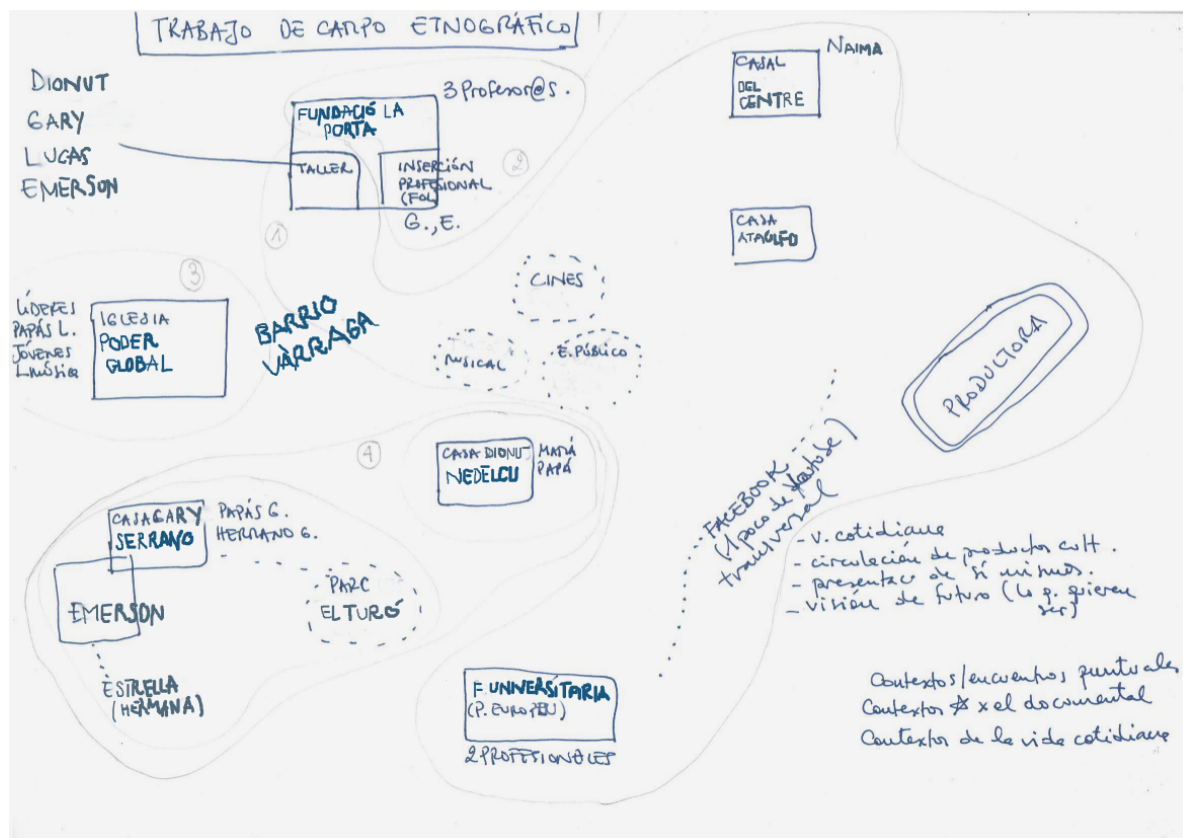 TRABAJO DE CAMPO ETNOGRÁFICO
DIONUT
GARY
LUCAS
EMERSON
FUNDACIÓ LA
PORTA
TALLER
INSERCIÓN
PROFESIONAL
(FOL)
3 Profesor@s.
G., E.
1
2
CASAL
DEL
CENTRE
NAIMA
CASA
ATAULFO
3
LÍDERES
PAPÁS L.
JÓVENES
L música
IGLESIA
PODER
GLOBAL
BARRIO
VÀRRAGA
CINES
MUSICAL
E. PÚBLICO
PRODUCTORA
4
CASA DIONUT
NEDELCU
MAMÁ
PAPÁ
CASA GARY
SERRANO
PAPÁS G.
HERMANO G.
EMERSON
ESTRELLA
(HERMANA)
PARC
EL TURÓ
F. UNIVERSITARIA
(P. EUROPEU)
2 PROFESIONALES
FACEBOOK
(1 poco de
transversal
- v. cotidiana
- circulación de productos cult.
- presentac de sí mismos.
- visión de futuro (lo q. quieren
ser)
Contextos/encuentros puntuales
Contextos x el documental
Contextos de la vida cotidiana